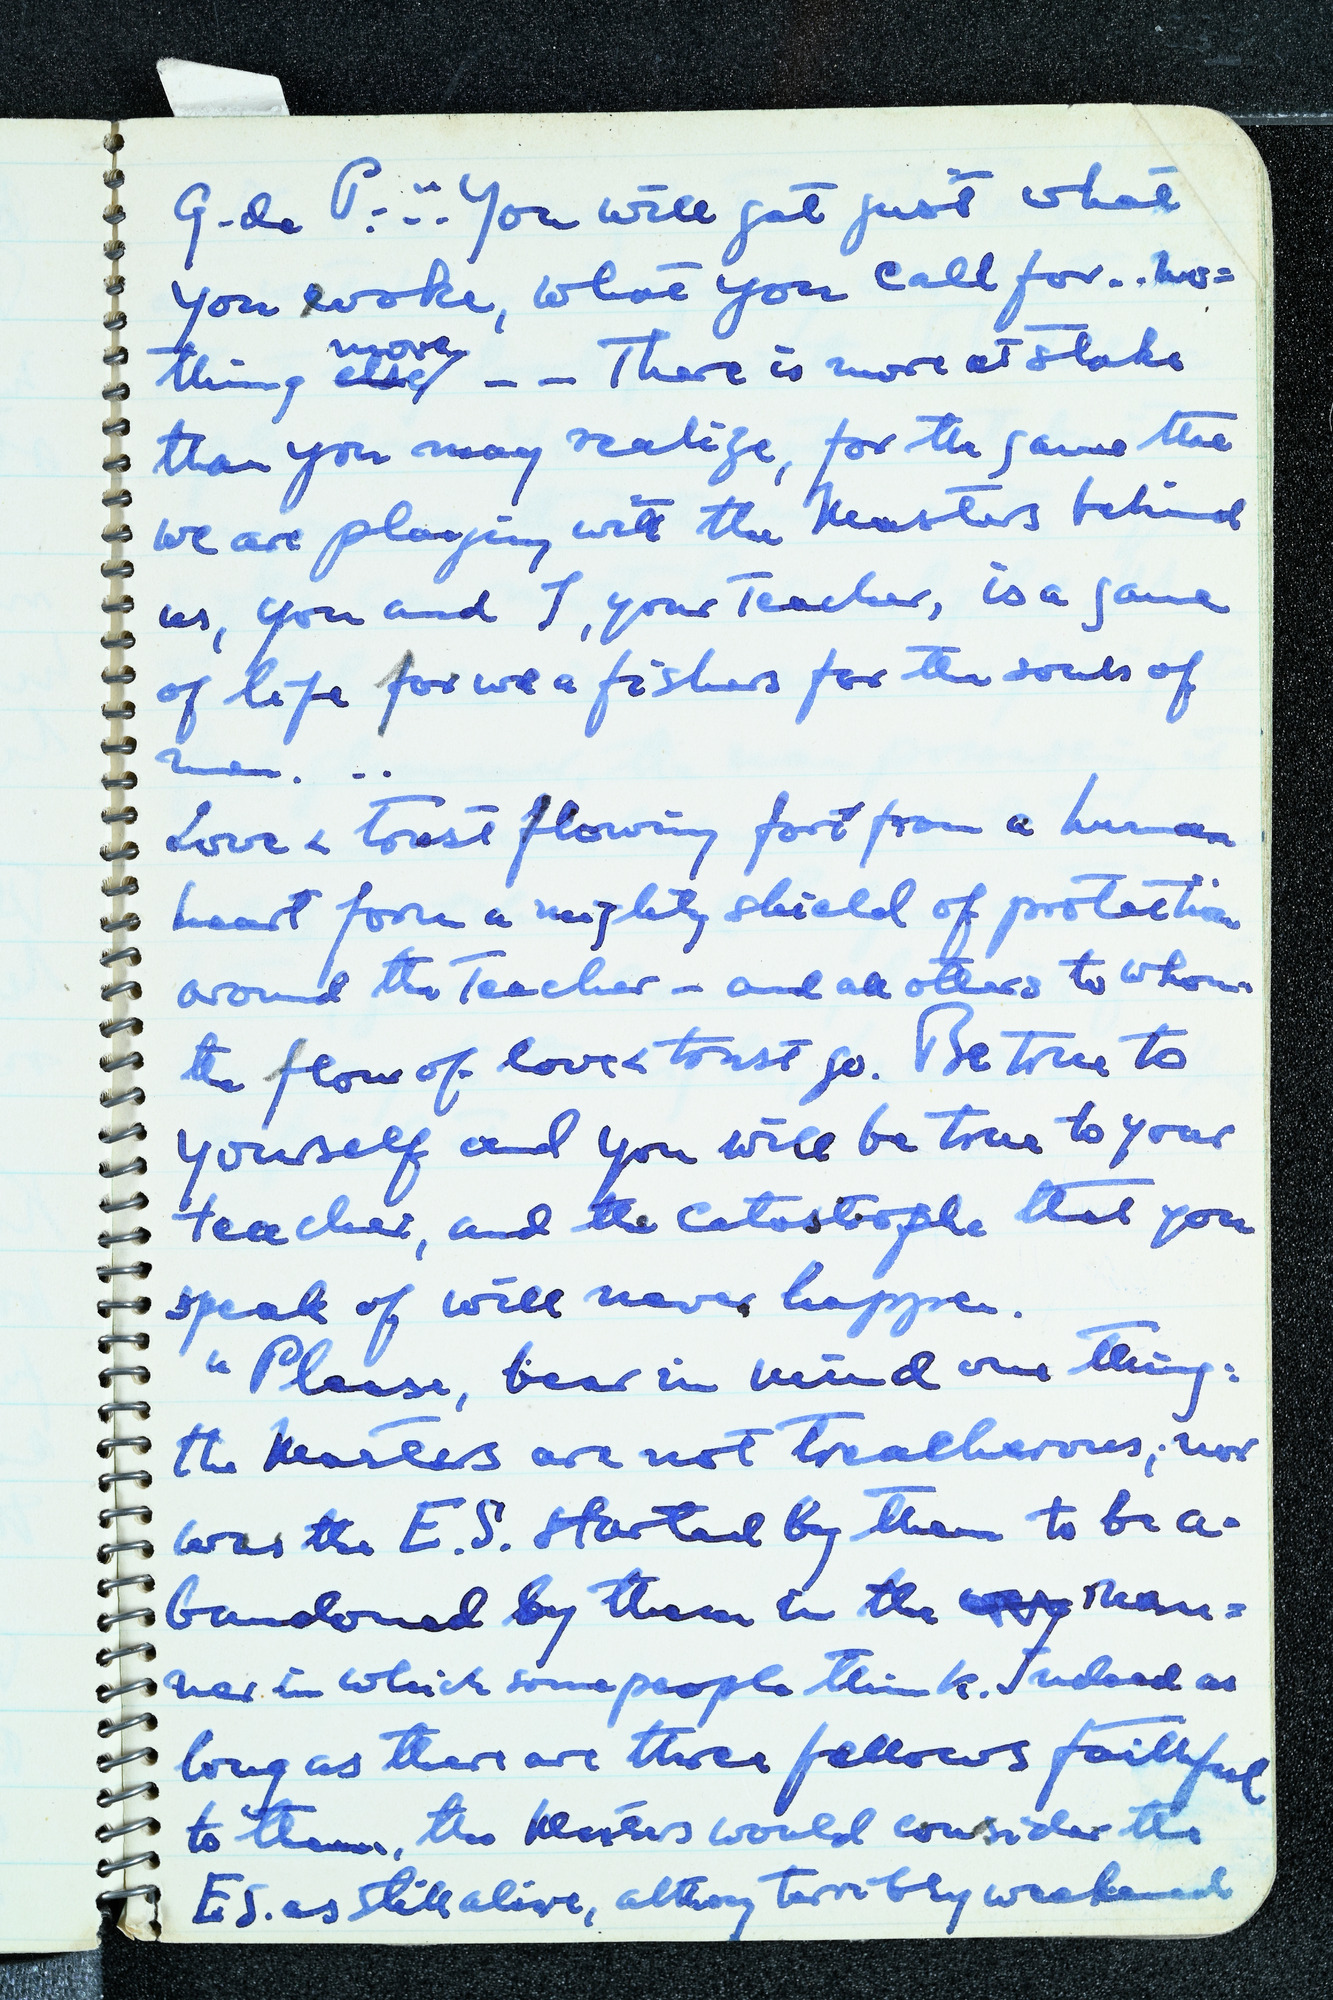 G-de P.: ".. You will get just what
you evoke, what you call for.. no=
thing else more -- There is more at stake
than you may realize, for the game the
we are playing with the Masters behind
us, you and I, your Teacher, is a game
of life for we a fishers for the souls of
men. ..
Love & trust flowing fort from a human
heart form a mighty shield of protection
around the Teacher - and all others to whom
the flow of love & trust go. Be true to
yourself and you will be true to your
teacher, and the catastrophe that you
speak of will never happen.
"Please, bear in mind one thing:
the Masters are not treacherous; nor
was the E.S. started by them to be a-
bandoned by them in the way man=
ner in which some people think. Indeed as
long as there are three fellows faithful
to them, the Masters would consider the
ES. as still alive, althoug terribly weakened